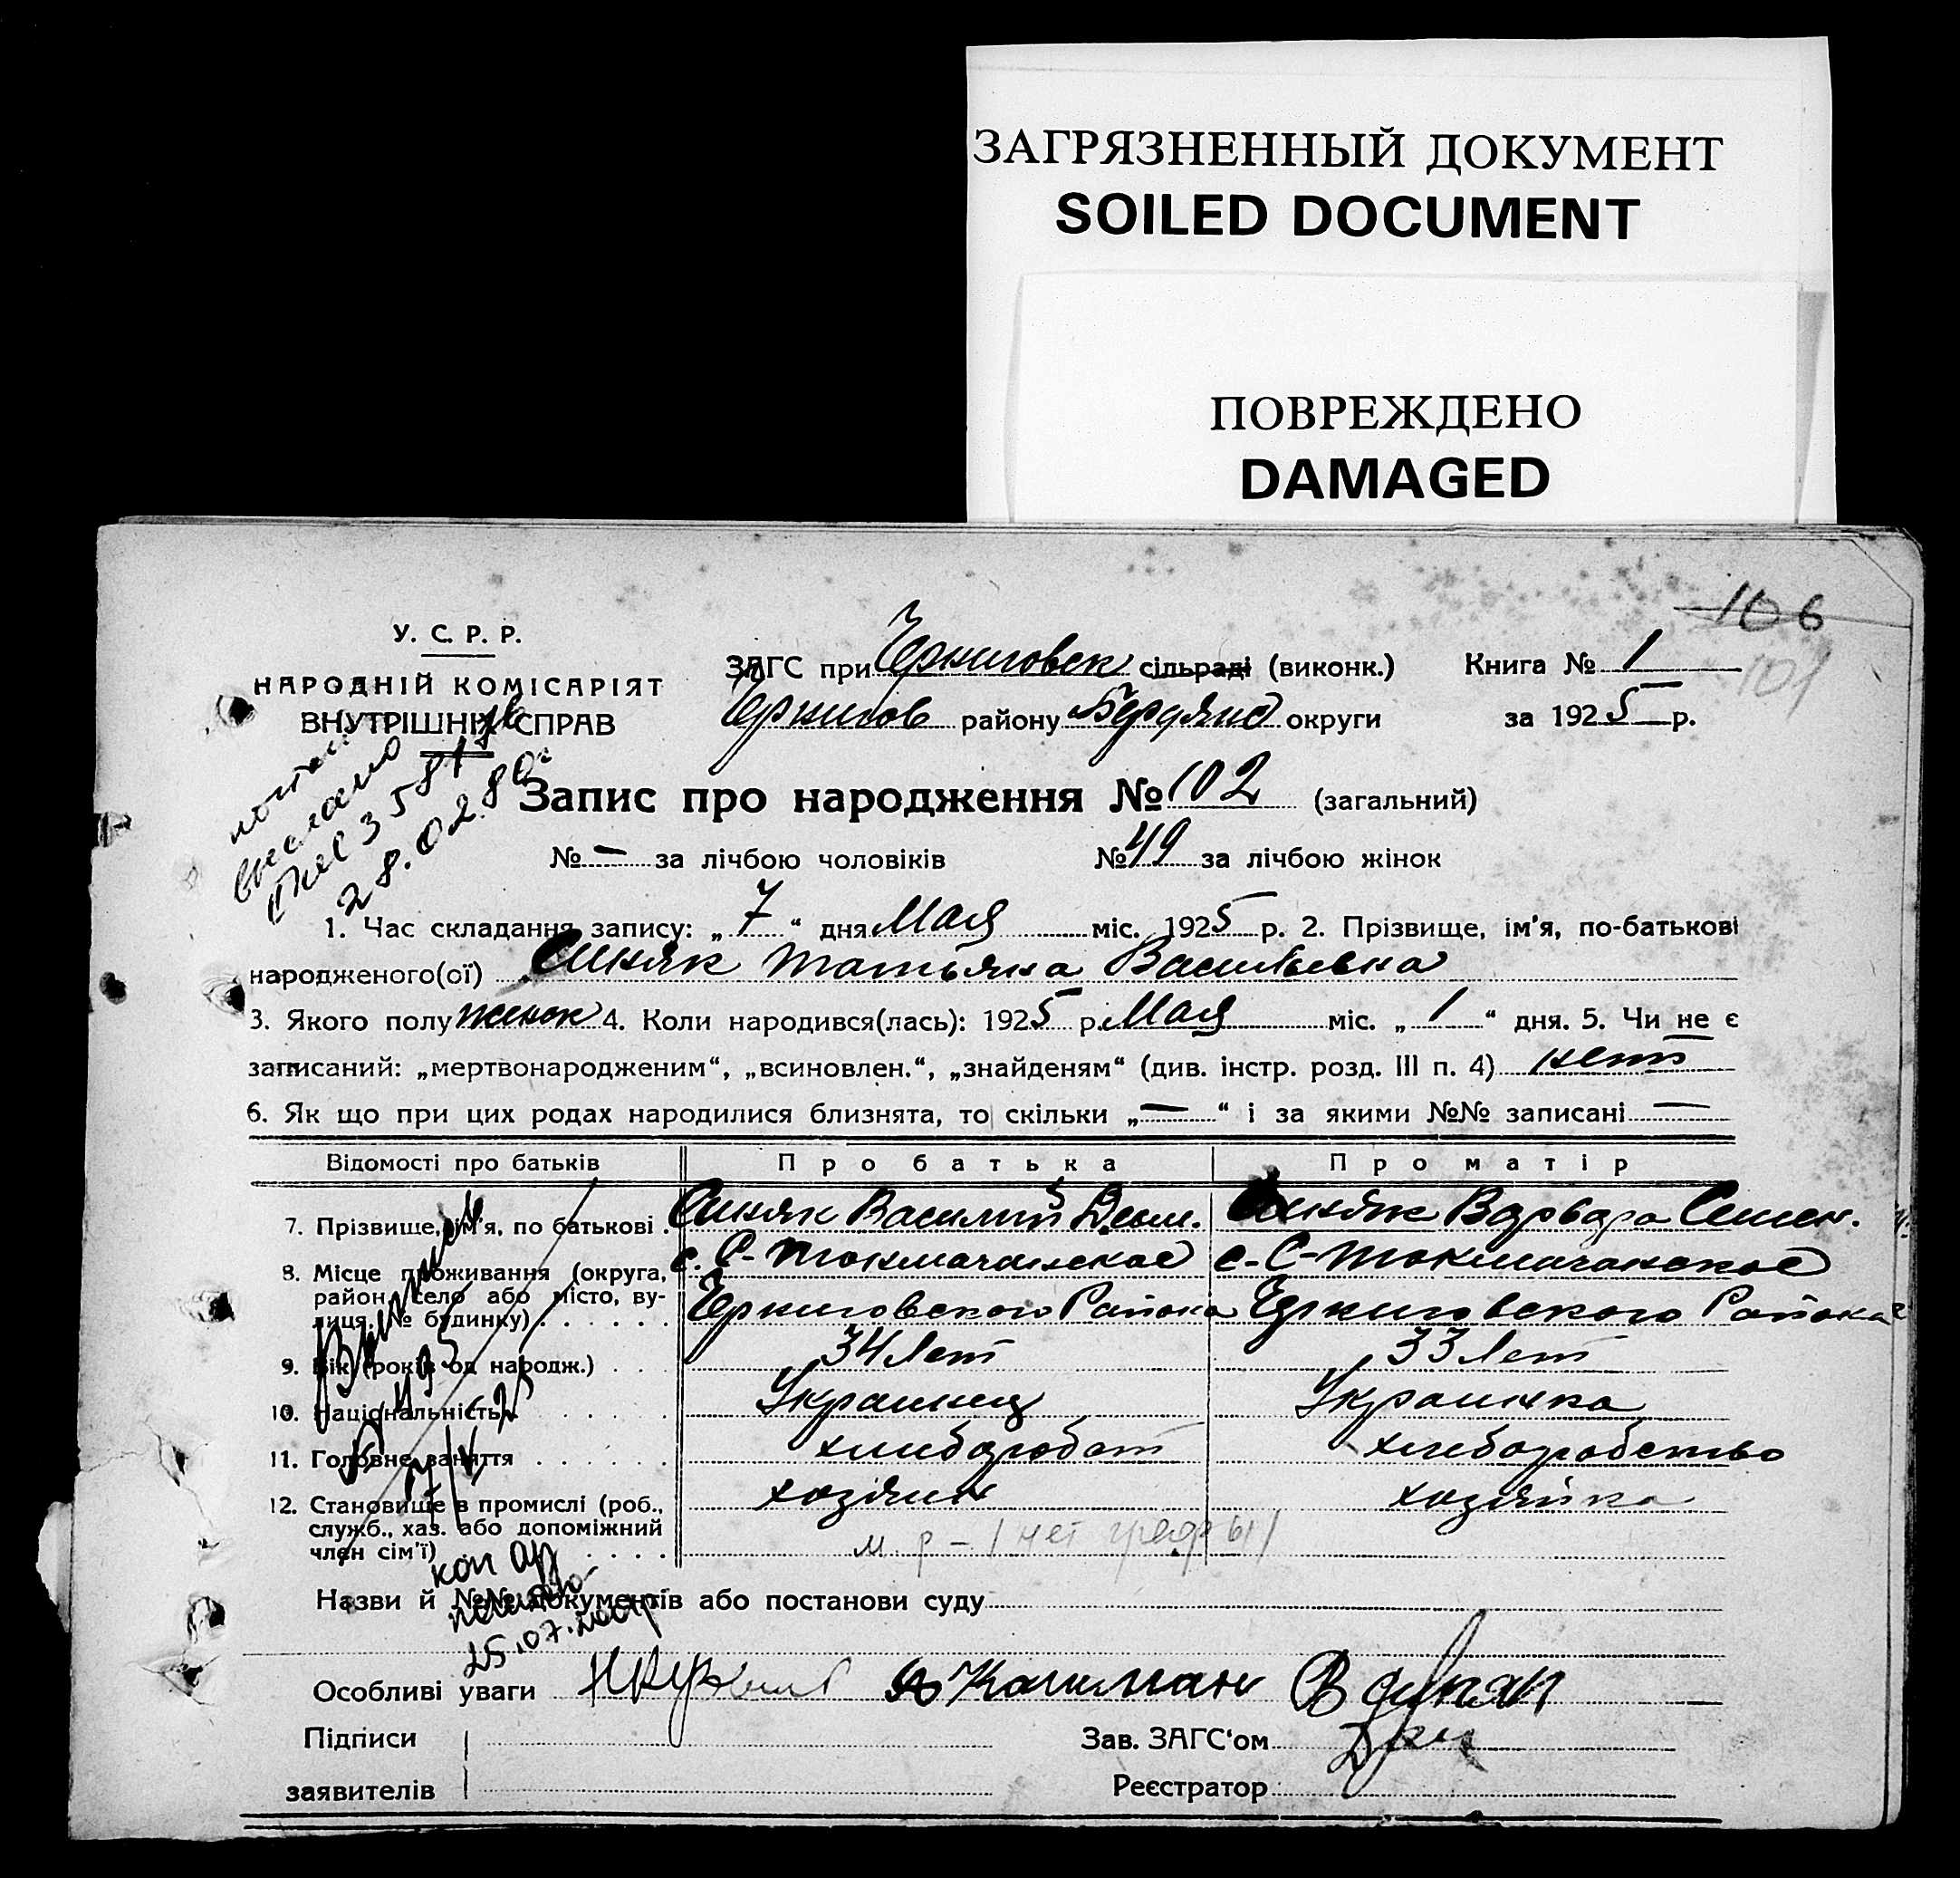 ЗАГРЯЗНЕННЫЙ ДОКУМЕНТ
SOILED DOCUMENT
ПОВРЕЖДЕНО
DAMAGED
106
101
У. С. Р. Р.
НАРОДНІЙ КОМІСАРІЯТ
ВНУТРІШНІХ СПРАВ
ЗАГС при Черниговск сільраді (виконк.) Книга № 1
Чернигов району Бердянс округи за 1925 р.
выслано
28.02.80
Запис про народження № 102 (загальний)
№ — за лічбою чоловіків № 49 за лічбою жінок
1. Час складання запису: „7“ дня Мая міс. 1925 р. 2. Прізвище, ім'я, по-батькові
народженого(ої) Синяк Татьяна Васильевна
3. Якого полу женск 4. Коли народився(лась): 1925 р. Мая міс. „1“ дня. 5. Чи не є
записаний: „мертвонародженим“, „всиновлен.“, „знайденям“ (див. інстр. розд. III п. 4) нет
6. Як що при цих родах народилися близнята, то скільки „—“ і за якими №№ записані —
Відомості про батьків Про батька Про матір
7. Прізвище, ім'я, по батькові . Синяк Василий Дем. Синяк Варвара Семен.
8. Місце проживання (округа, с. С-Токмачанское с. С-Токмачанское
район, село або місто, ву-
лиця, № будинку) . . . . . . Черниговского Района Черниговского Района
9. Вік (років од народж.) . . . 34 Лет 33 Лет
10. Національність . . . . . Украинец Украинка
11. Головне заняття . . . . . . хлебороб хлеборобство
12. Становище в промислі (роб., хозяин хозяйка
служб., хаз. або допоміжний
член сім'ї) . . . . . м. р - / нет графы /
коп
25.07.
Назви й №№ документів або постанови суду
Особливі уваги
Підписи Зав. ЗАГС'ом
заявителів Реєстратор